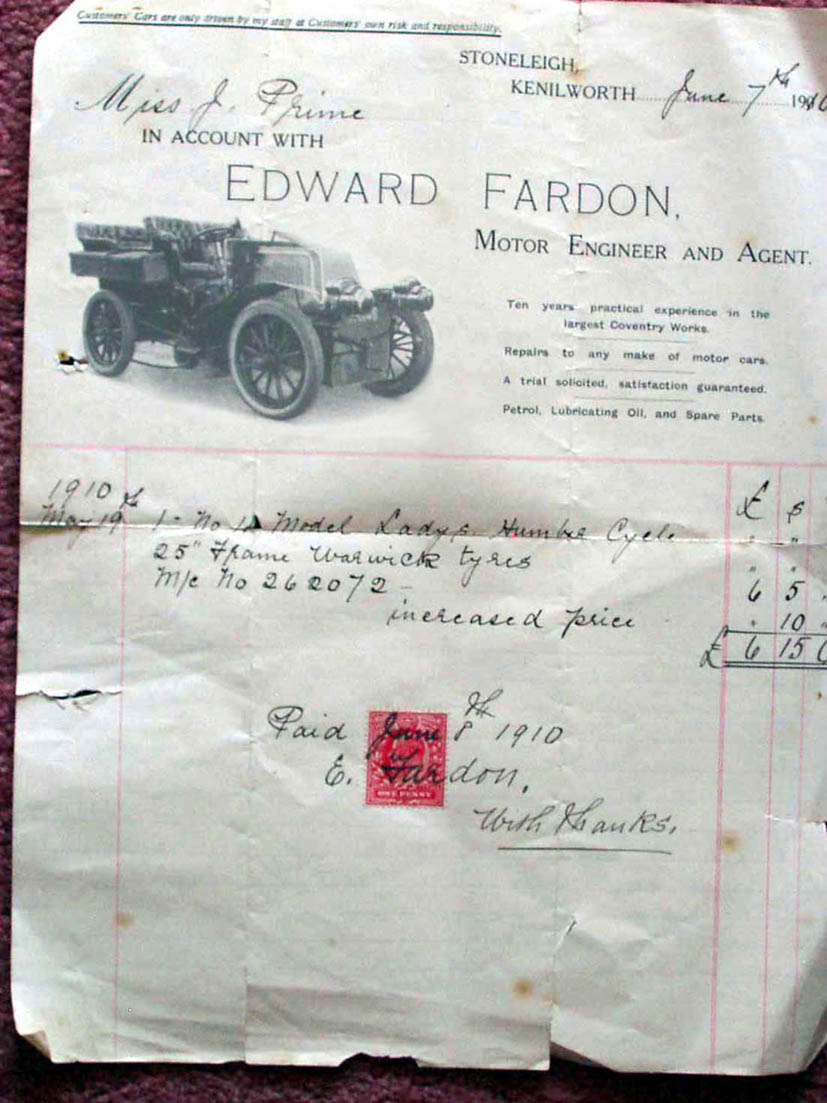 Customers' Cars are only driven by my staff at Customers' own risk and responsibility.
STONELEIGH,
KENILWORTH June 7th 1910
Miss J. Prime
IN ACCOUNT WITH
EDWARD FARDON,
MOTOR ENGINEER AND AGENT.
Ten years practical experience in the
largest Coventry Works.
Repairs to any make of motor cars.
A trial solicited, satisfaction guaranteed.
Petrol, Lubricating Oil, and Spare Parts.
1910 £ s
May 19th 1 - No 12 Model Ladys Humber Cycle " "
25" Frame Warwick tyres " "
M/c No 262072 - 6 5
increased price " 10 "
£ 6 15
Paid June 8th 1910
E. Fardon,
ONE PENNY
With thanks.